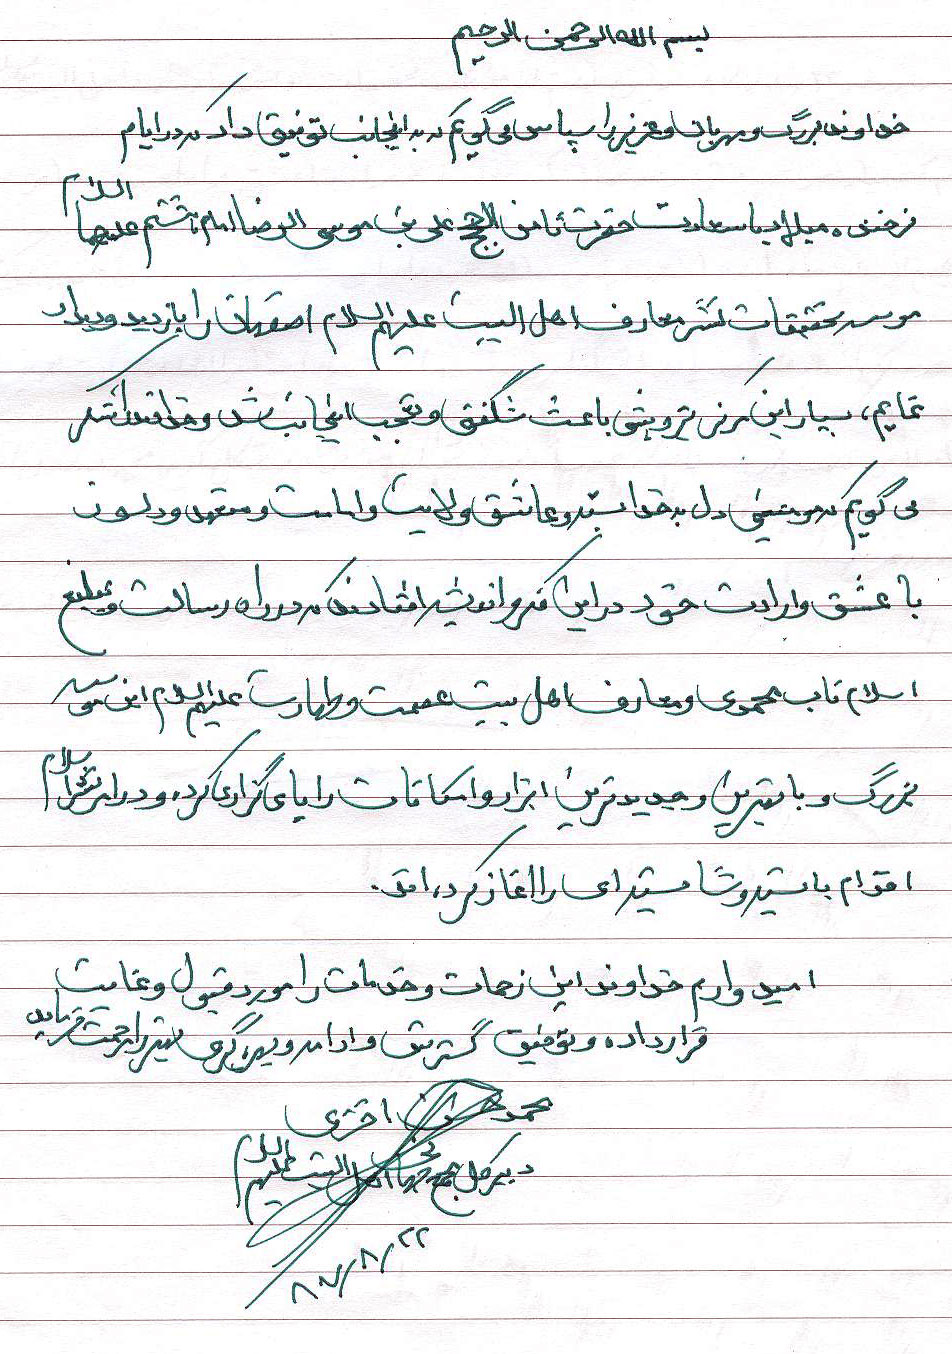 بسم الله الرحمن الرحیم
خداوند بزرگ و مهربان و عزیز را سپاس می‌گویم که به اینجانب توفیق داد که در ایام
فرخنده میلاد با سعادت حضرت ثامن الحجج علی بن موسی الرضا امام هشتم علیهما السلام
موسسه تحقیقات نشر معارف اهل البیت علیهم السلام اصفهان را بازدید و دیدار
نمایم، بسیار این مرکز پژوهشی باعث شگفتی و تعجب اینجانب شد و خداوند را شکر
می گویم که مومنینی دل به خدا بسته و عاشق ولایت و امامت و متعهد و دلسوز
با عشق و ارادت خود در این فکر و اندیشه افتادند که در راه رسالت و تبلیغ
اسلام ناب محمدی و معارف اهل بیت عصمت و طهارت علیهم السلام این موسسه
بزرگ و با بهترین و جدیدترین ابزار و امکانات را پایه گزاری کرده و در امر نشر اسلام
اقدام بایسته و شایسته ای را آغاز کرده اند.
امیدوارم خداوند این زحمات و خدمات را مورد قبول و عنایت
قرار داده و توفیق گسترش و ادامه و بهره گیری بهتر را مرحمت فرماید
محمد حسن اختری
دبیر کل مجمع جهانی اهل البیت علیهم السلام
۸۷/۸/۲۲